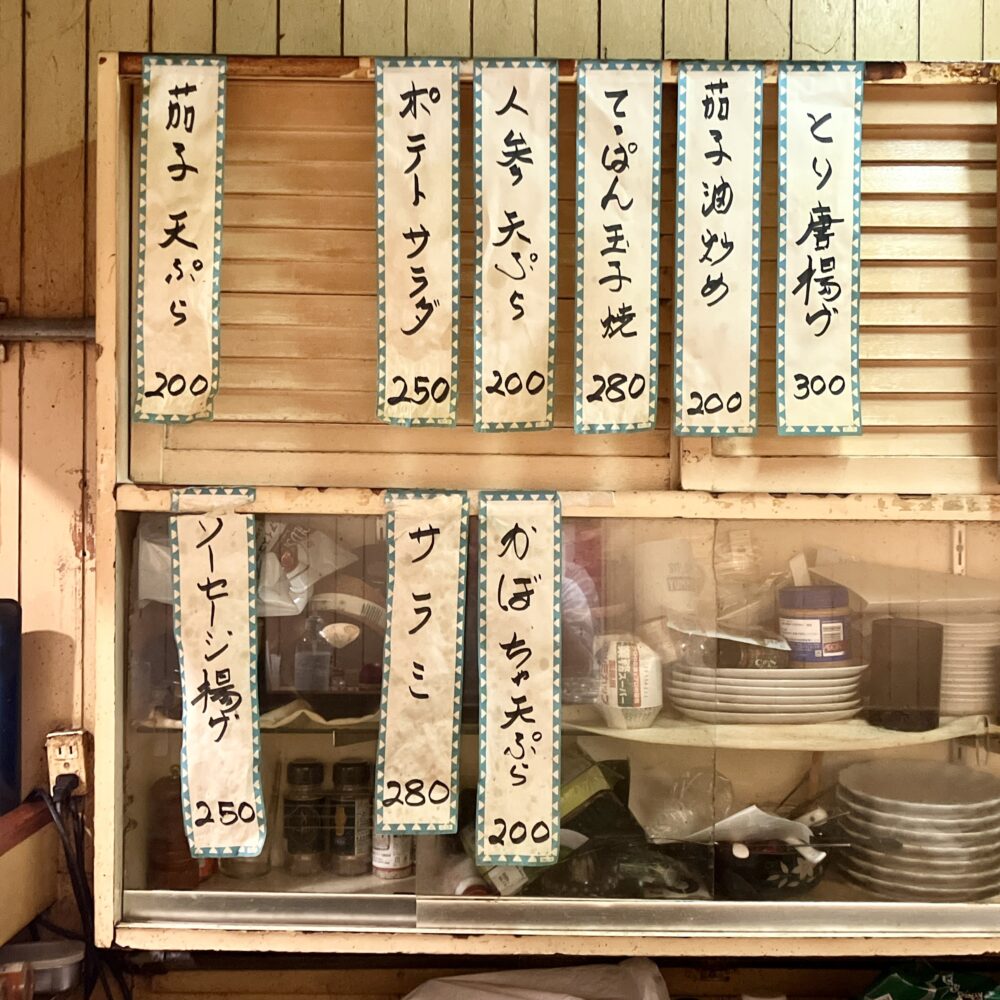 とり唐揚げ
300
茄子油炒め
200
てっぱん玉子焼
280
人参天ぷら
200
ポテトサラダ
250
茄子天ぷら
200
かぼちゃ天ぷら
200
サラミ
280
ソーセージ揚げ
250